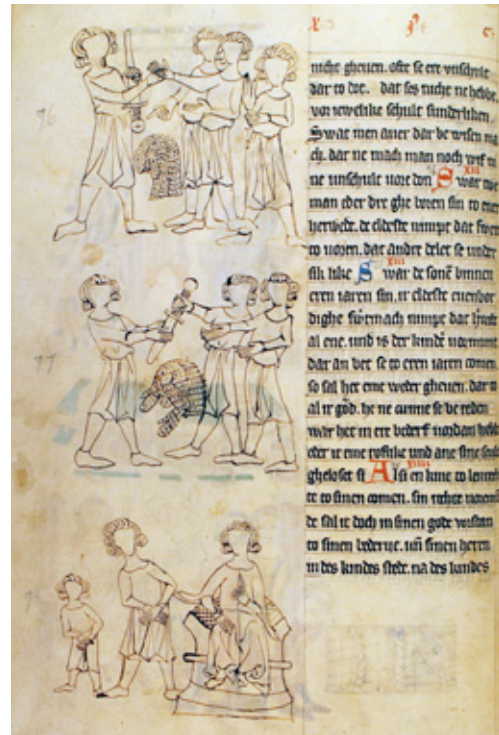 nicht gheuen. ofte se ere vnschult
dar to doe. dat ses nicht ne hebbe.
von iewelike schult sunderliken.
Swat men auer dar be wisen ma
ch. dar ne mach man noch wif n
ne unschult uore don Swar twe
man eder dre ghe boren sin to ener
herwede. de eldeste nimpt dat swert
to uoren. dat andre delet se under
sik like Swar de sone binnen
eren iaren sin. ir eldeste euenbor
dighe swertmach nimpt dat herwede
al ene. und is der kinde uormunt
dar an bet se to eren iaren comen.
so sal het eme weder gheuen. dar to
al ir god. he ne cunne se be reden
war het in ere bederf uordan hebbe
eder it eme roflike und ane sine scult
gheloset si Alsi en kint to
to sinen comen. sin rechte uormun
de sal it doch in sinen gode vorstan
to sinen bederue. un sinen heren
in des kindes stede. na des kindes